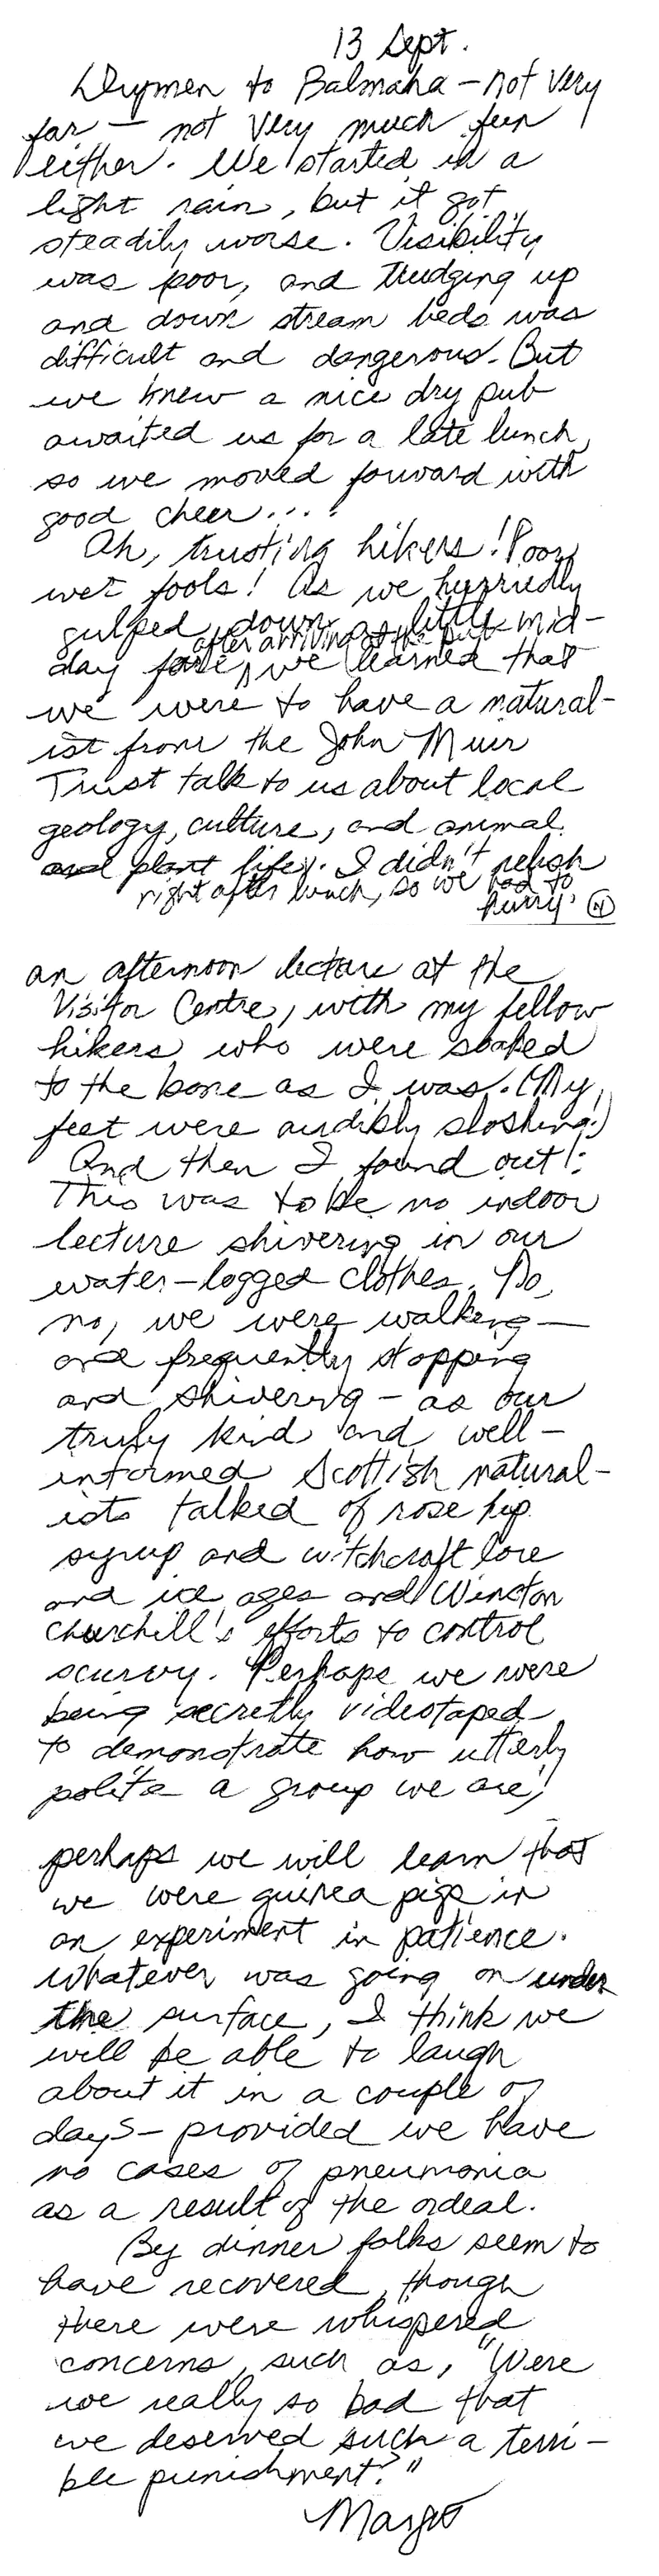 13 Sept.
Drymen to Balmaha – not very
far – not very much fun
either. We started in a
light rain, but it got
steadily worse. Visibility
was poor, and trudging up
and down stream beds was
difficult and dangerous. But
we knew a nice dry pub
awaited us for a late lunch,
so we moved forward with
good cheer....
Ah, trusting hikers! Poor,
wet fools! As we hurriedly
gulped down a little mid-
after arriving at the pub
day fare, we learned that
we were to have a natural-
ist from the John Muir
Trust talk to us about local
geology, culture, and animal
and plant life. I didn't relish
right after lunch, so we had to
hurry. N
an afternoon lecture at the
Visitor Centre, with my fellow
hikers who were soaked
to the bone as I was. (My
feet were audibly sloshing.)
And then I found out!:
This was to be no indoor
lecture shivering in our
water-logged clothes. No,
no, we were walking —
and frequently stopping
and shivering – as our
truly kind and well-
informed Scottish natural-
ists talked of rose hip
syrup and witchcraft lore
and ice ages and Winston
Churchill's efforts to control
scurvy. Perhaps we were
being secretly videotaped
to demonstrate how utterly
polite a group we are;
perhaps we will learn that
we were guinea pigs in
an experiment in patience.
Whatever was going on under
the surface, I think we
will be able to laugh
about it in a couple of
days – provided we have
no cases of pneumonia
as a result of the ordeal.
By dinner folks seem to
have recovered, though
there were whispered
concerns, such as, "Were
we really so bad that
we deserved such a terri-
ble punishment?"
Margo